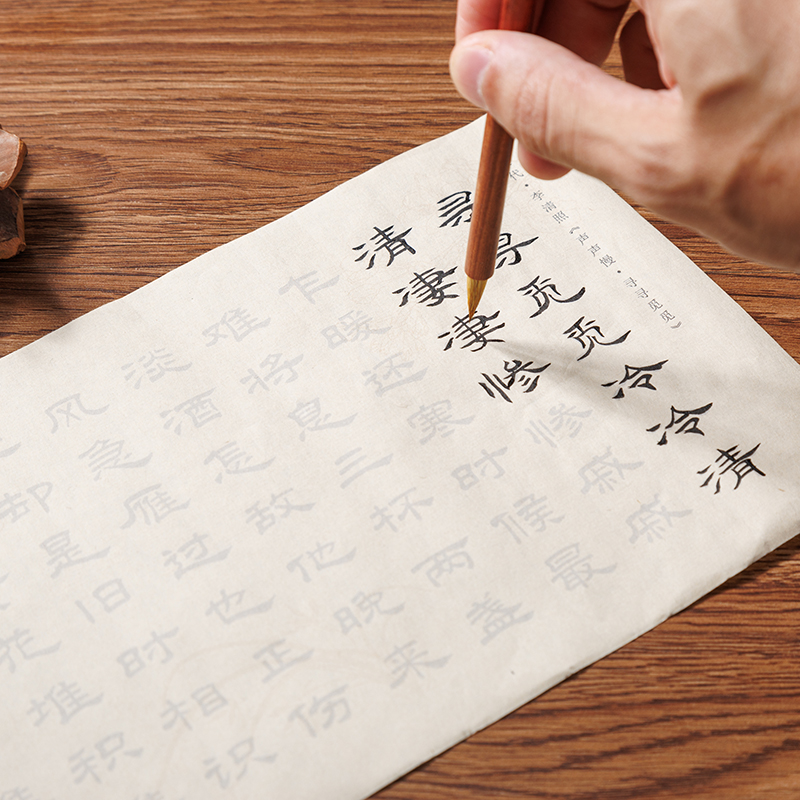 代·李清照《声声慢·寻寻觅觅》
寻寻觅觅冷冷清
清凄凄惨惨戚戚
乍暖还寒时候最
难将息三杯两盏
淡酒怎敌他晚来
风急雁过也正伤
却是旧时相识
花堆积